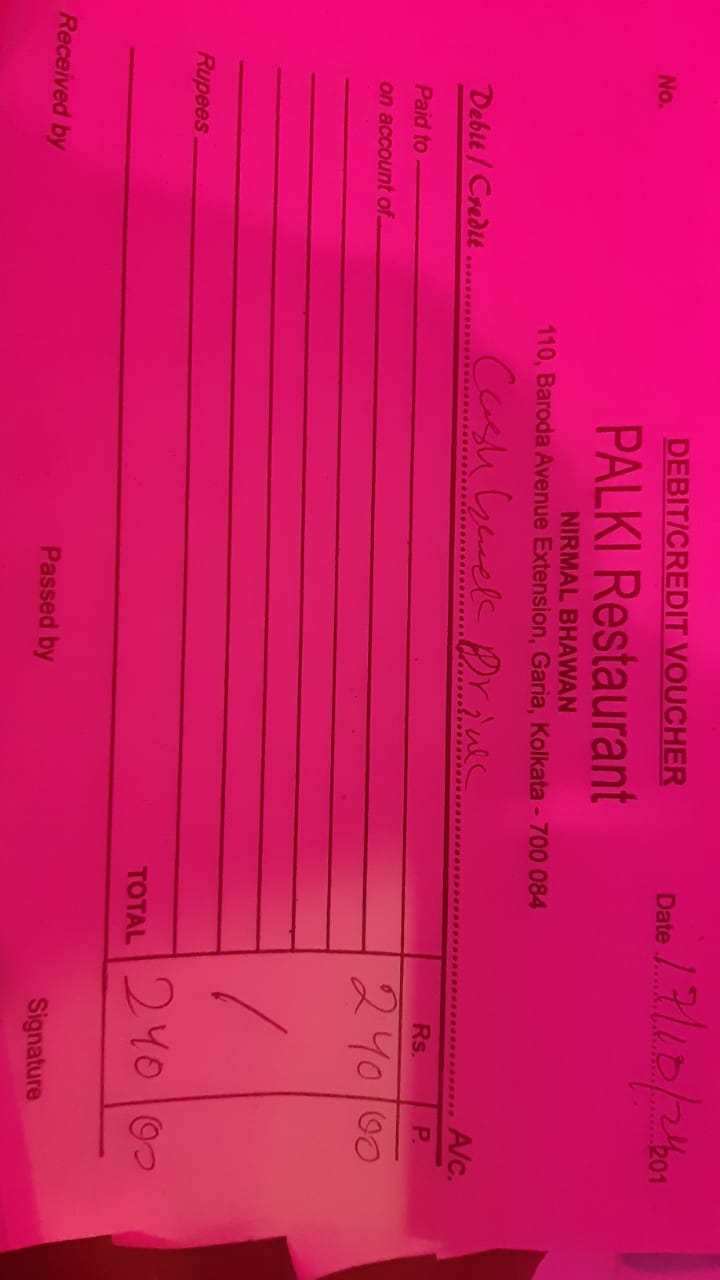 DEBIT/CREDIT VOUCHER
No. Date 17/10/24 201
PALKI Restaurant
NIRMAL BHAWAN
110, Baroda Avenue Extension, Garia, Kolkata - 700 084
Debit / Credit A/c.
Paid to Rs. P.
on account of 240 00
Rupees
TOTAL 240 00
Received by Passed by Signature